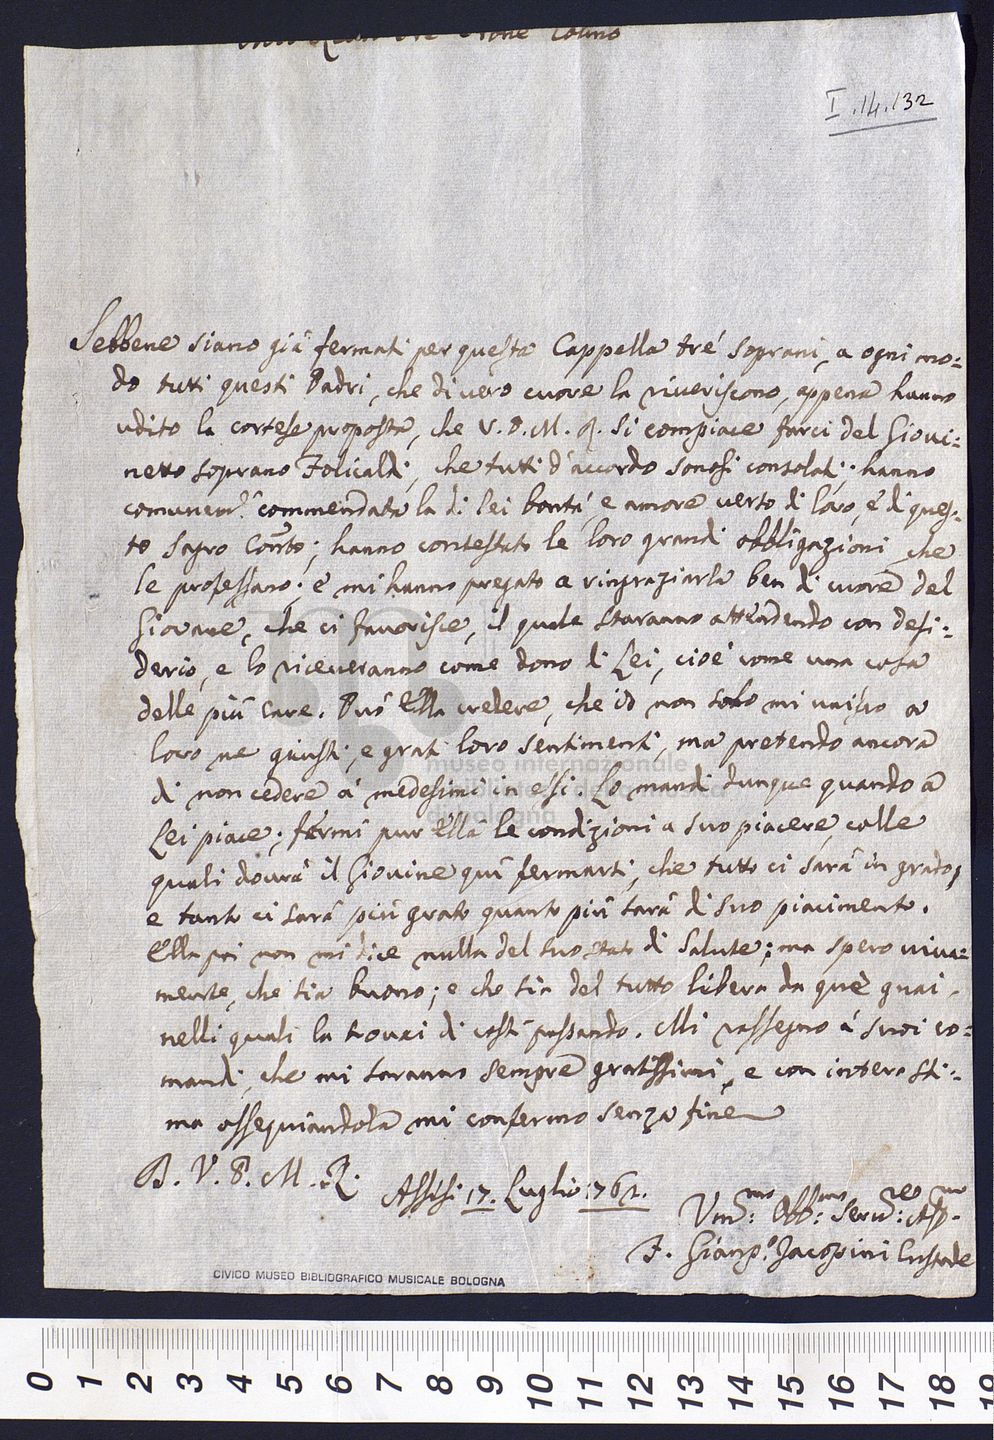 Pñe Colmo
I.14.132
Sebbene siano già fermati per questa Cappella tré soprani, a ogni mo=
do tuti questi Padri, che di vero cuore la riveriscono, appena hanno
udito la cortese proposta, che V. P. M. R. si compiace farci del Giovi=
netto soprano Folicaldi, che tutti d'accordo sonosi consolati; hanno
comunem.e commendata la di lei bontà, e amore verso di loro, e di ques=
to Sagro Con̄to; hanno contestato le loro grandi obbligazioni che
le professano; e mi hanno pregato a ringraziarla ben di cuore del
Giovane, che ci favorisce, il quale staranno attendendo con desi=
derio, e lo riceveranno come dono di Lei, cioè come una cosa
delle più care. Può Ella credere, che io non solo mi unisco a
loro ne giusti, e grati loro sentimenti, ma pretendo ancora
di non cedere à medesimi in essi. Lo mandi dunque quando à
Lei piace; fermi pur Ella le condizioni a suo piacere, colle
quali dovrà il Giovine quì fermarsi, che tutto ci sarà in grado,
e tanto ci sarà più grato quanto più sarà di suo piacimento.
Ella poi non mi dice nulla del suo stato di salute; ma spero viva=
mente, che sia buono; e che sia del tutto libera da què guai,
nelli quali la trovai di costì passando. Mi rassegno à suoi co=
mandi, che mi saranno sempre gratissimi, e con intera sti=
ma ossequiandola mi confermo senza fine
D. V. P. M. R. Assisi 17. Luglio 1761.
Um̄o: Obb̄mo: Serv.re: Aff.mo
F. Giamp.o Jacopini Custode
CIVICO MUSEO BIBLIOGRAFICO MUSICALE BOLOGNA
museo internazionale
e biblioteca della musica
di bologna
0 1 2 3 4 5 6 7 8 9 10 11 12 13 14 15 16 17 18